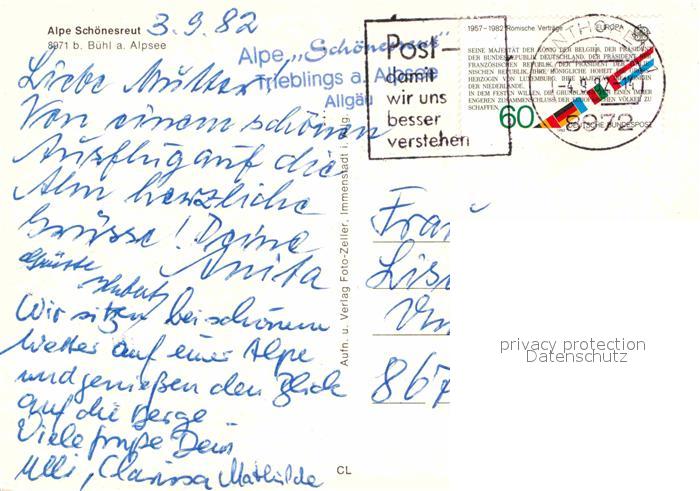 Alpe Schönesreut 3.9.82
8971 b. Bühl a. Alpsee
Alpe „Schönesreut"
Trieblings a. Alpsee
Allgäu
Liebe Mutter!
Von einem schönen
Ausflug auf die
Alm herzliche
Grüsse! Deine
Anita
Grüße
Hubert
Wir sitzen bei schönem
Wetter auf einer Alpe
und genießen den Blick
auf die Berge
Viele Grüße Dein
Ulli, Clarissa Mathilde
Aufn. u. Verlag Foto-Zeller, Immenstadt i. Allg.
CL
Post-
damit
wir uns
besser
verstehen
1957-1982 Römische Verträge EUROPA
SEINE MAJESTÄT DER KÖNIG DER BELGIER, DER PRÄSIDENT
DER BUNDESREPUBLIK DEUTSCHLAND, DER PRÄSIDENT DER
FRANZÖSISCHEN REPUBLIK, DER PRÄSIDENT DER ITALIE-
NISCHEN REPUBLIK, IHRE KÖNIGLICHE HOHEIT DIE GROSS-
HERZOGIN VON LUXEMBURG, IHRE MAJESTÄT DIE KÖNIGIN
DER NIEDERLANDE,
IN DEM FESTEN WILLEN, DIE GRUNDLAGEN FÜR EINEN IMMER
ENGEREN ZUSAMMENSCHLUSS DER EUROPÄISCHEN VÖLKER ZU
SCHAFFEN,
60
DEUTSCHE BUNDESPOST
8972
Frau
Lis
867
privacy protection
Datenschutz